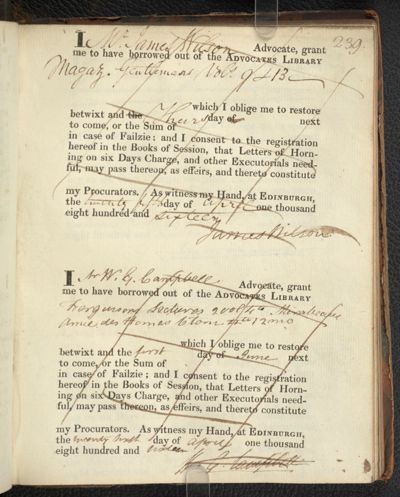 239.
I Mr James Wilson Advocate, grant
me to have borrowed out of the ADVOCATES LIBRARY
Magaz. Gentlemans Vols. 9 & 13
which I oblige me to restore
betwixt and the day of next
to come, or the Sum of
in case of Failzie: and I consent to the registration
hereof in the Books of Session, that Letters of Horn-
ing on six Days Charge, and other Executorials need-
ful, may pass thereon, as effeirs, and thereto constitute
my Procurators. As witness my Hand, at EDINBURGH,
the day of April one thousand
eight hundred and sixteen
James Wilson
I Mr W. G. Campbell Advocate, grant
me to have borrowed out of the ADVOCATES LIBRARY
Fergusons Lectures 2 vols
Amie des 12mo
which I oblige me to restore
betwixt and the first day of June next
to come, or the Sum of
in case of Failzie; and I consent to the registration
hereof in the Books of Session, that Letters of Horn-
ing on six Days Charge, and other Executorials need-
ful, may pass thereon, as effeirs, and thereto constitute
my Procurators. As witness my Hand, at EDINBURGH,
the twenty sixth day of April one thousand
eight hundred and sixteen
W. G. Campbell